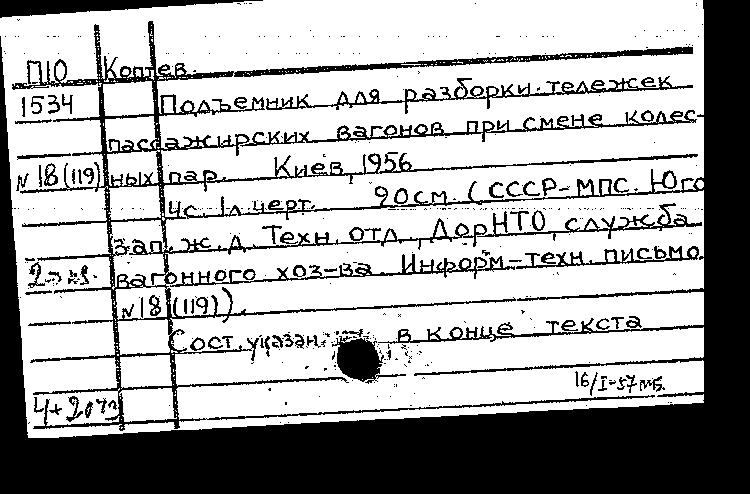 П10 Коптев.
1534 Подъемник для разборки тележек
пассажирских вагонов при смене колес-
N18(119) ных пар. Киев, 1956
4с. 1л.черт. 20см. (СССР-МПС. Юго
зап. ж. д. Техн. отд., ДорНТО, служба
2 экз. вагонного хоз-ва. Информ-техн. письмо
N18(119)).
Сост. указан. в конце текста
16/I-57
4+20